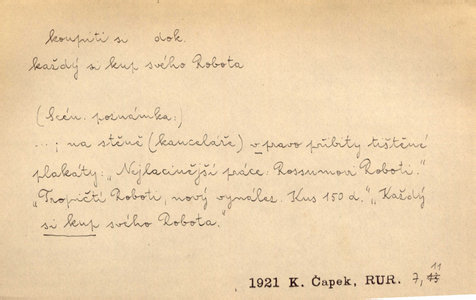 koupiti si dok.
každý si kup svého Robota
(Scén. poznámka:)
...; na stěně (kanceláře) vpravo přibity tištěné
plakáty: „Nejlacinější práce. Rossumovi Roboti.“
„Tropičtí Roboti, nový vynález. Kus 150 d.“ „Každý
si kup svého Robota.“
1921 K. Čapek, RUR. 7, 11